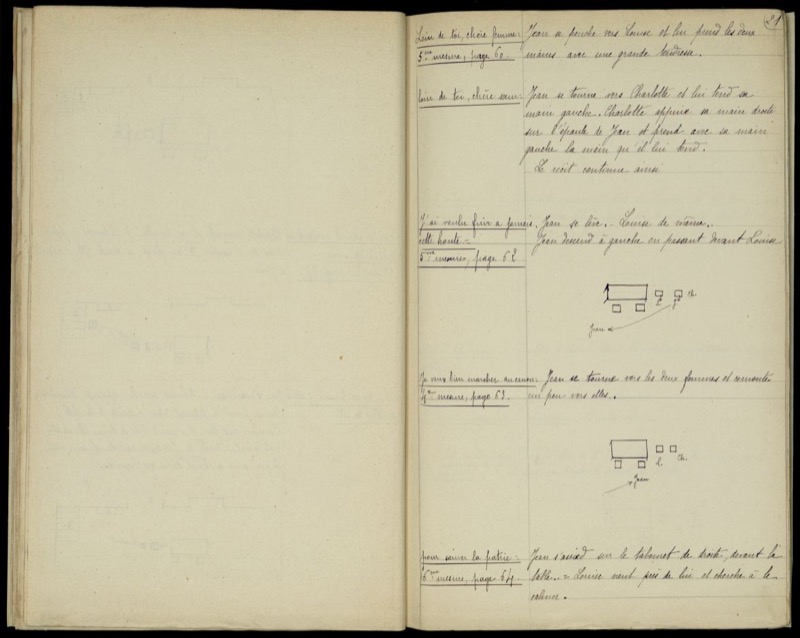 31
Loin de toi, chère femme: Jean se penche vers Louise et lui prend les deux
5me mesure, page 60. mains avec une grande tendresse.
loin de toi, chère sœur: Jean se tourne vers Charlotte et lui tend sa
main gauche. Charlotte appuie sa main droite
sur l'épaule de Jean et prend avec sa main
gauche la main qu'il lui tend.
Le récit continue ainsi
J'ai voulu fuir à jamais Jean se lève. - Louise de même. -
cette honte = Jean descend à gauche en passant devant Louise
5me mesure, page 62
L J Ch.
Jean
Je veux bien marcher au canon: Jean se tourne vers les deux femmes et remonte
4me mesure, page 63. un peu vers elles.
L. Ch.
Jean
pour sauver la patrie = Jean s'assied sur le tabouret de droite, devant la
6me mesure, page 64. table. = Louise vient près de lui et cherche à le
calmer.